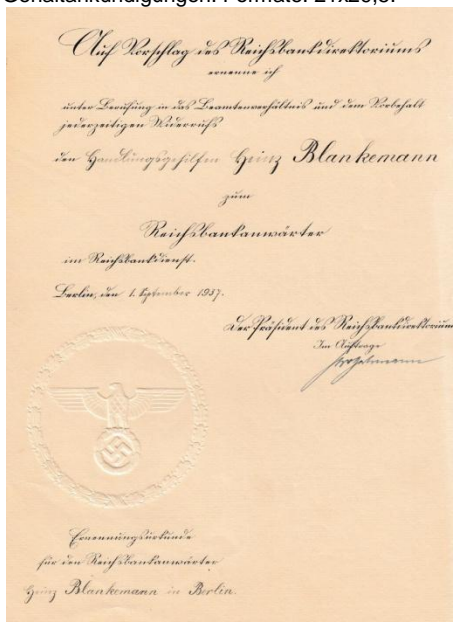 Gehaltankündigungen. Formate: 21x29,8.
Auf Vorschlag des Reichsbankdirektoriums
ernenne ich
unter Berufung in das Beamtenverhältnis und dem Vorbehalt
jederzeitigen Widerrufs
den Handlungsgehilfen Heinz Blankemann
zum
Reichsbankanwärter
im Reichsbankdienst.
Berlin, den 1. September 1937.
Der Präsident des Reichsbankdirektoriums
Im Auftrage
Ernennungsurkunde
für den Reichsbankanwärter
Heinz Blankemann in Berlin.